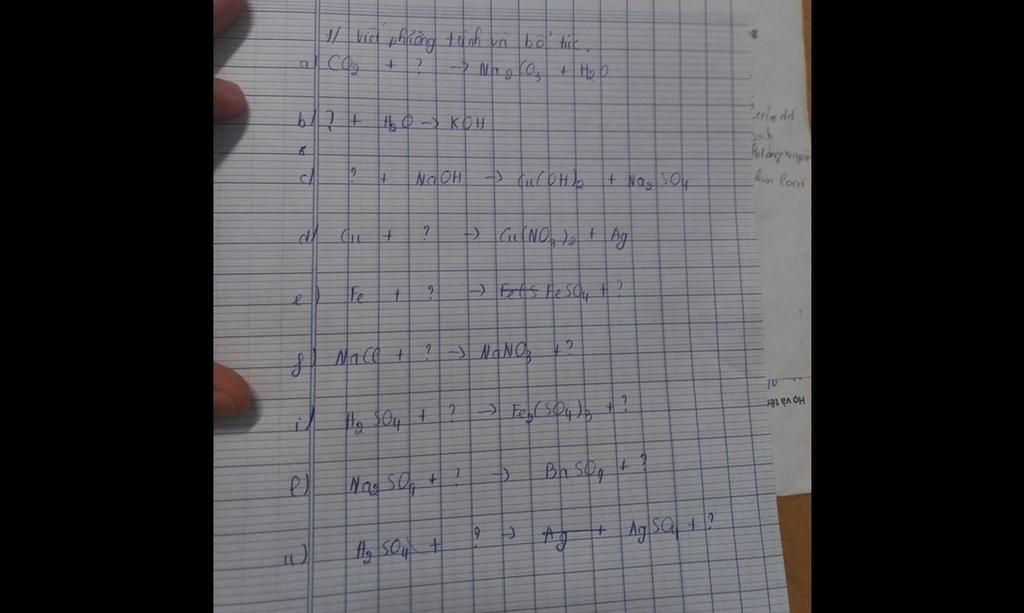 1/ Viết phương trình và bổ túc.
a) CO2 + ? → Na2CO3 + H2O
b) ? + H2O → KOH
c) ? + NaOH → Cu(OH)2 + Na2SO4
d) Cu + ? → Cu(NO3)2 + Ag
e) Fe + ? → FeSO4 + ?
g) NaCl + ? → NaNO3 + ?
i) H2SO4 + ? → Fe2(SO4)3 + ?
l) Na2SO4 + ? → BaSO4 + ?
u) H2SO4 + ? → Ag + AgSO4 + ?
Họ và tên